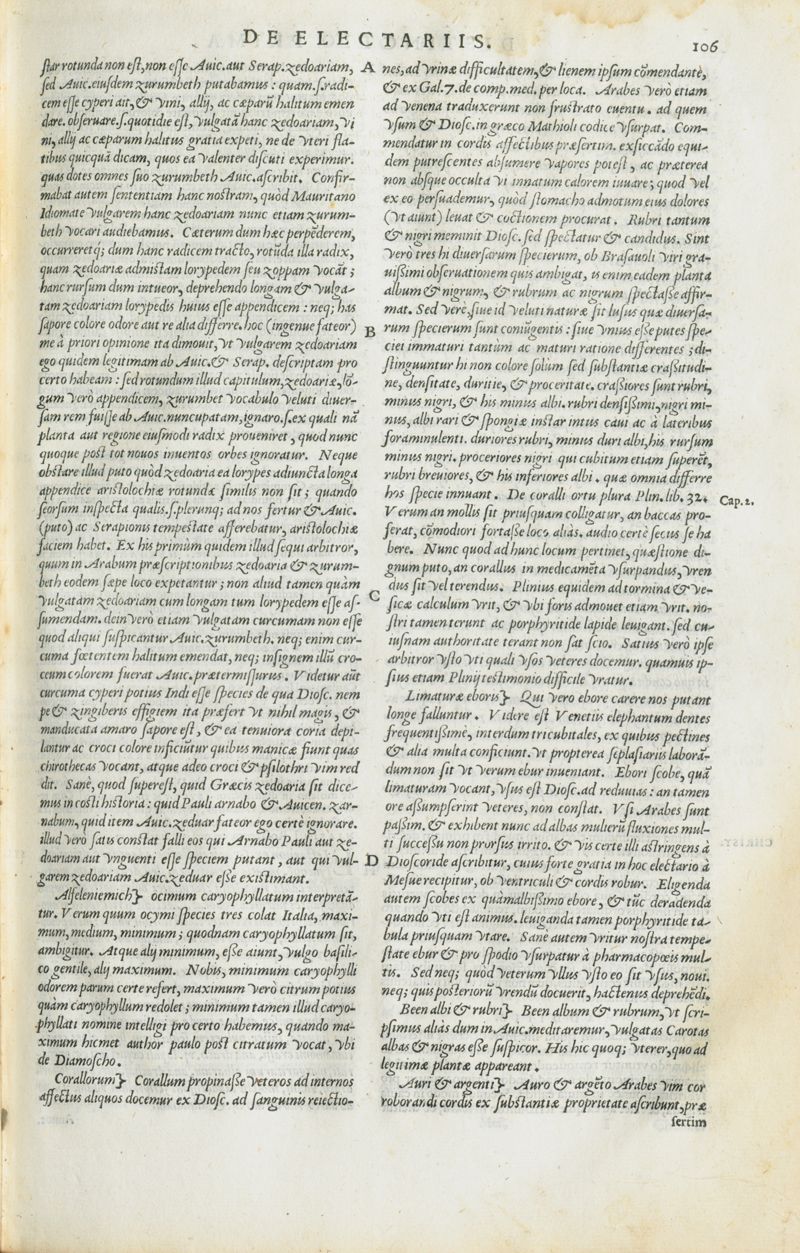 DE ELECTARIIS.
106
star rotunda non est, non esse Auic. aut Serap. zedoariam,
sed Auic. eiusdem zurumbeth putabamus: quam .s. radi-
cem esse cyperi ait, & vini, allij, ac cæparũ halitum emen
dare. obseruare .s. quotidie est, vulgatã hanc zedoariam, vi
ni, allij ac cæparum halitus gratia expeti, ne de vteri fla-
tibus quicquã dicam, quos ea valenter discuti experimur.
quas dotes omnes suo zurumbeth Auic. ascribit. Confir-
mabat autem sententiam hanc nostram, quòd Mauritano
Idiomate vulgarem hanc zedoariam nunc etiam zurum-
beth vocari audiebamus. Cæterum dum hæc perpẽderem,
occurreretq; dum hanc radicem tracto, rotũda illa radix,
quam zedoariæ admistam lorypedem seu zoppam vocãt;
hanc rursum dum intueor, deprehendo longam & vulga-
tam zedoariam lorypedis huius esse appendicem: neq; has
sapore colore odore aut re alia differre. hoc (ingenue fateor)
me à priori opinione ita dimouit, vt vulgarem zedoariam
ego quidem legitimam ab Auic. & Serap. descriptam pro
certo habeam: sed rotundum illud capitulum, zedoariæ, lõ-
gum verò appendicem, zurumbet vocabulo veluti diuer-
sam rem fuisse ab Auic. nuncupatam, ignaro .s. ex quali nã
planta aut regione eiusmodi radix proueniret, quod nunc
quoque post tot nouos inuentos orbes ignoratur. Neque
obstare illud puto quòd zedoaria ea lorypes adiuncta longa
appendice aristolochiæ rotundæ similis non sit; quando
seorsum inspecta qualis .s. plerunq; ad nos fertur & Auic.
(puto) ac Serapionis tempestate afferebatur, aristolochiæ
faciem habet. Ex his primum quidem illud sequi arbitror,
quum in Arabum præscriptionibus zedoaria & zurum-
beth eodem sæpe loco expetantur; non aliud tamen quàm
vulgatam zedoariam cum longam tum lorypedem esse as-
sumendam. dein verò etiam vulgatam curcumam non esse
quod aliqui suspicantur Auic. zurumbeth. neq; enim cur-
cuma fœtentem halitum emendat, neq; insignem illũ cro-
ceum colorem fuerat Auic. prætermissurus. Videtur aũt
curcuma cyperi potius Indi esse species de qua Diosc. nem
pe & zingiberis effigiem ita præfert vt nihil magis, &
manducata amaro sapore est, & ea tenuiora coria depi-
lantur ac croci colore inficiũtur quibus manicæ fiunt quas
chirothecas vocant, atque adeo croci & psilothri vim red
dit. Sanè, quod superest, quid Græcis zedoaria sit dice-
mus in costi historia: quid Pauli arnabo & Auicen. zar-
nabum, quid item Auic. zeduar fateor ego certè ignorare.
illud verò satis constat falli eos qui Arnabo Pauli aut ze-
doariam aut vnguenti esse speciem putant, aut qui vul-
garem zedoariam Auic. zeduar esse existimant.
Alfeleniemich} ocimum caryophyllatum interpretã-
tur. Verum quum ocymi species tres colat Italia, maxi-
mum, medium, minimum; quodnam caryophyllatum sit,
ambigitur. Atque alij minimum, esse aiunt, vulgo basili-
co gentile, alij maximum. Nobis, minimum caryophylli
odorem parum certe refert, maximum verò citrum potius
quàm caryophyllum redolet; minimum tamen illud caryo-
phyllati nomine intelligi pro certo habemus, quando ma-
ximum hicmet author paulo post citratum vocat, vbi
de Diamoscho.
Corallorum} Corallum propinasse veteros ad internos
affectus aliquos docemur ex Diosc. ad sanguinis reiectio-
A
B
C
D
nes, ad vrinæ difficultatem, & lienem ipsum cõmendantẽ,
& ex Gal. 7. de comp. med. per loca. Arabes verò etiam
ad venena traduxerunt non frustrato euentu. ad quem
vsum & Diosc. in græco Mathioli codice vsurpat. Com-
mendatur in cordis affectibus præsertim. exsiccãdo equi-
dem putrescentes absumere vapores potest, ac præterea
non absque occulta vi innatum calorem iuuare; quod vel
ex eo persuademur, quòd stomacho admotum eius dolores
(vt aiunt) leuat & coctionem procurat. Rubri tantum
& nigri meminit Diosc. sed spectatur & candidus. Sint
verò tres hi diuersarum specierum, ob Brasauoli viri gra-
uissimi obseruationem quis ambigat, is enim eadem planta
album & nigrum, & rubrum ac nigrum spectasse affir-
mat. Sed verè, siue id veluti naturæ sit lusus quæ diuersa-
rum specierum sunt coniũgentis: siue vnius esse putes spe-
ciei immaturi tantùm ac maturi ratione differentes; di-
stinguuntur hi non colore solum sed substantiæ crassitudi-
ne, densitate, duritie, & proceritate. crassiores sunt rubri,
minus nigri, & his minus albi. rubri densissimi, nigri mi-
nus, albi rari & spongiæ instar intus caui ac à lateribus
foraminulenti. duriores rubri, minus duri albi, his rursum
minus nigri. proceriores nigri qui cubitum etiam superẽt,
rubri breuiores, & his inferiores albi. quæ omnia differre
hos specie innuant. De coralli ortu plura Plin. lib. 32.
Cap. 2.
Verum an mollis sit priusquam colligatur, an baccas pro-
ferat, cõmodiori fortasse loco aliàs. audio certè secus se ha
bere. Nunc quod ad hunc locum pertinet, quæstione di-
gnum puto, an corallus in medicamẽta vsurpandus, vren
dus sit vel terendus. Plinius equidem ad tormina & ve-
sicæ calculum vrit, & vbi foris admouet etiam vrit. no-
stri tamen terunt ac porphyritide lapide leuigant. sed cu-
iusnam authoritate terant non sat scio. Satius verò ipse
arbitror vsto vti quali vsos veteres docemur. quamuis ip-
sius etiam Plinij testimonio difficile vratur.
Limaturæ eboris} Qui vero ebore carere nos putant
longe falluntur. Videre est Venetiis elephantum dentes
frequentissimè, interdum tricubitales, ex quibus pectines
& alia multa conficiunt. vt propterea seplasiariis laborã-
dum non sit vt verum ebur inueniant. Ebori scobe, quã
limaturam vocant, vsus est Diosc. ad reduuias: an tamen
ore assumpserint veteres, non constat. Vsi Arabes sunt
passim. & exhibent nunc ad albas mulierũ fluxiones mul-
ti successu non prorsus irrito. & vis certe illi astringens à
Dioscoride ascribitur, cuius forte gratia in hoc electario à
Mesue recipitur, ob ventriculi & cordis robur. Eligenda
autem scobes ex quàm albissimo ebore, & tũc deradenda
quando vti est animus. leuiganda tamen porphyritide ta-
bula priusquam vtare. Sanè autem vritur nostra tempe-
state ebur & pro spodio vsurpatur à pharmacopœis mul-
tis. Sed neq; quòd veterum vllus vsto eo sit vsus, noui.
neq; quis posteriorũ vrendũ docuerit, hactenus deprehẽdi.
Been albi & rubri} Been album & rubrum, vt scri-
psimus aliàs dum in Auic. meditaremur, vulgatas Carotas
albas & nigras esse suspicor. His hic quoq; vterer, quo ad
legitimæ plantæ appareant.
Auri & argenti} Auro & argẽto Arabes vim cor
roborandi cordis ex substantiæ proprietate ascribunt, præ
sertim